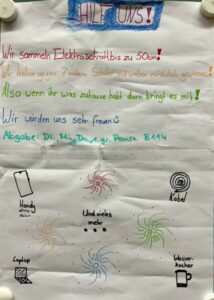 HILF UNS!
Wir sammeln Elektroschrott bis zu 50cm!
Wir treten gegen 7 andere Schulen und wollen natürlich gewinnen!
Also wenn ihr was zuhause habt dann bringt es mit!
Wir würden uns sehr freuen
Abgabe: Di, Mi, Do, 1. gr. Pause B114
Handy
ohne
Kabel
Und vieles
mehr ...
Laptop
Wasser-
kocher